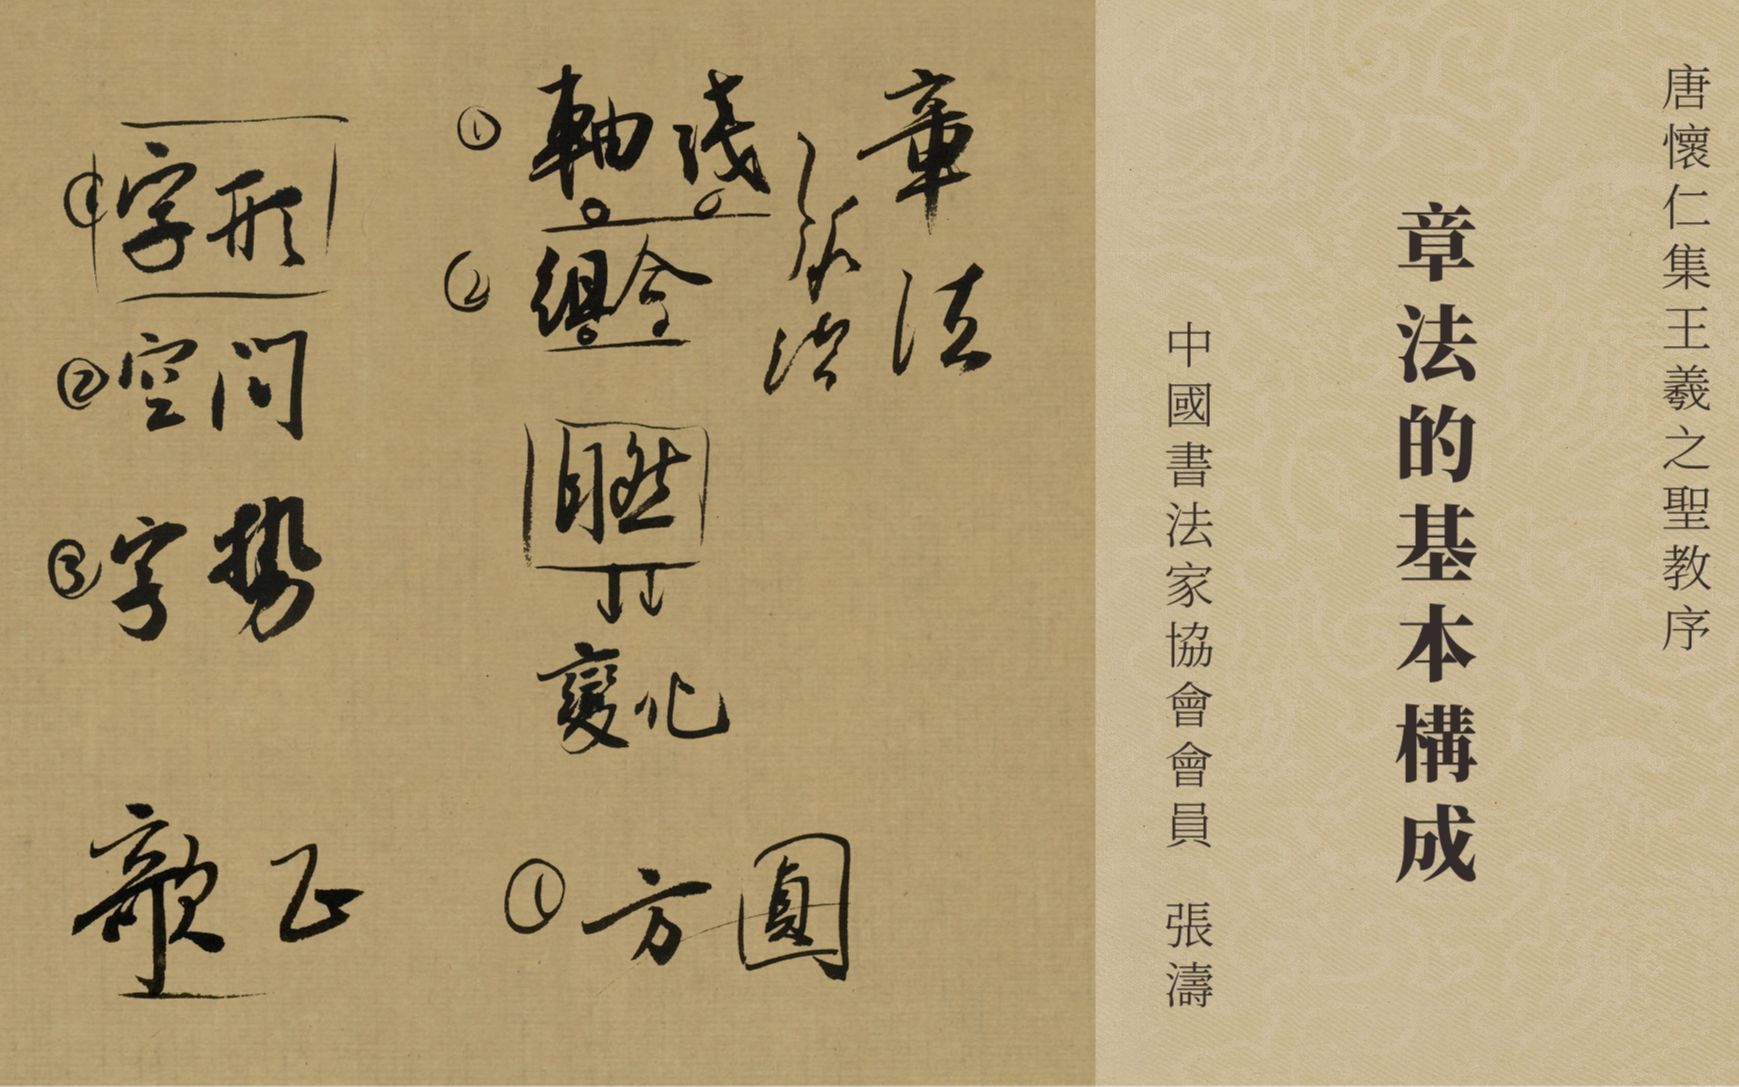 唐懷仁集王羲之聖教序
章法的基本構成
中國書法家協會會員 張濤
章法
① 軸线
② 組合
自然
變化
① 方圓
① 字形
② 空间
③ 字势
歌正